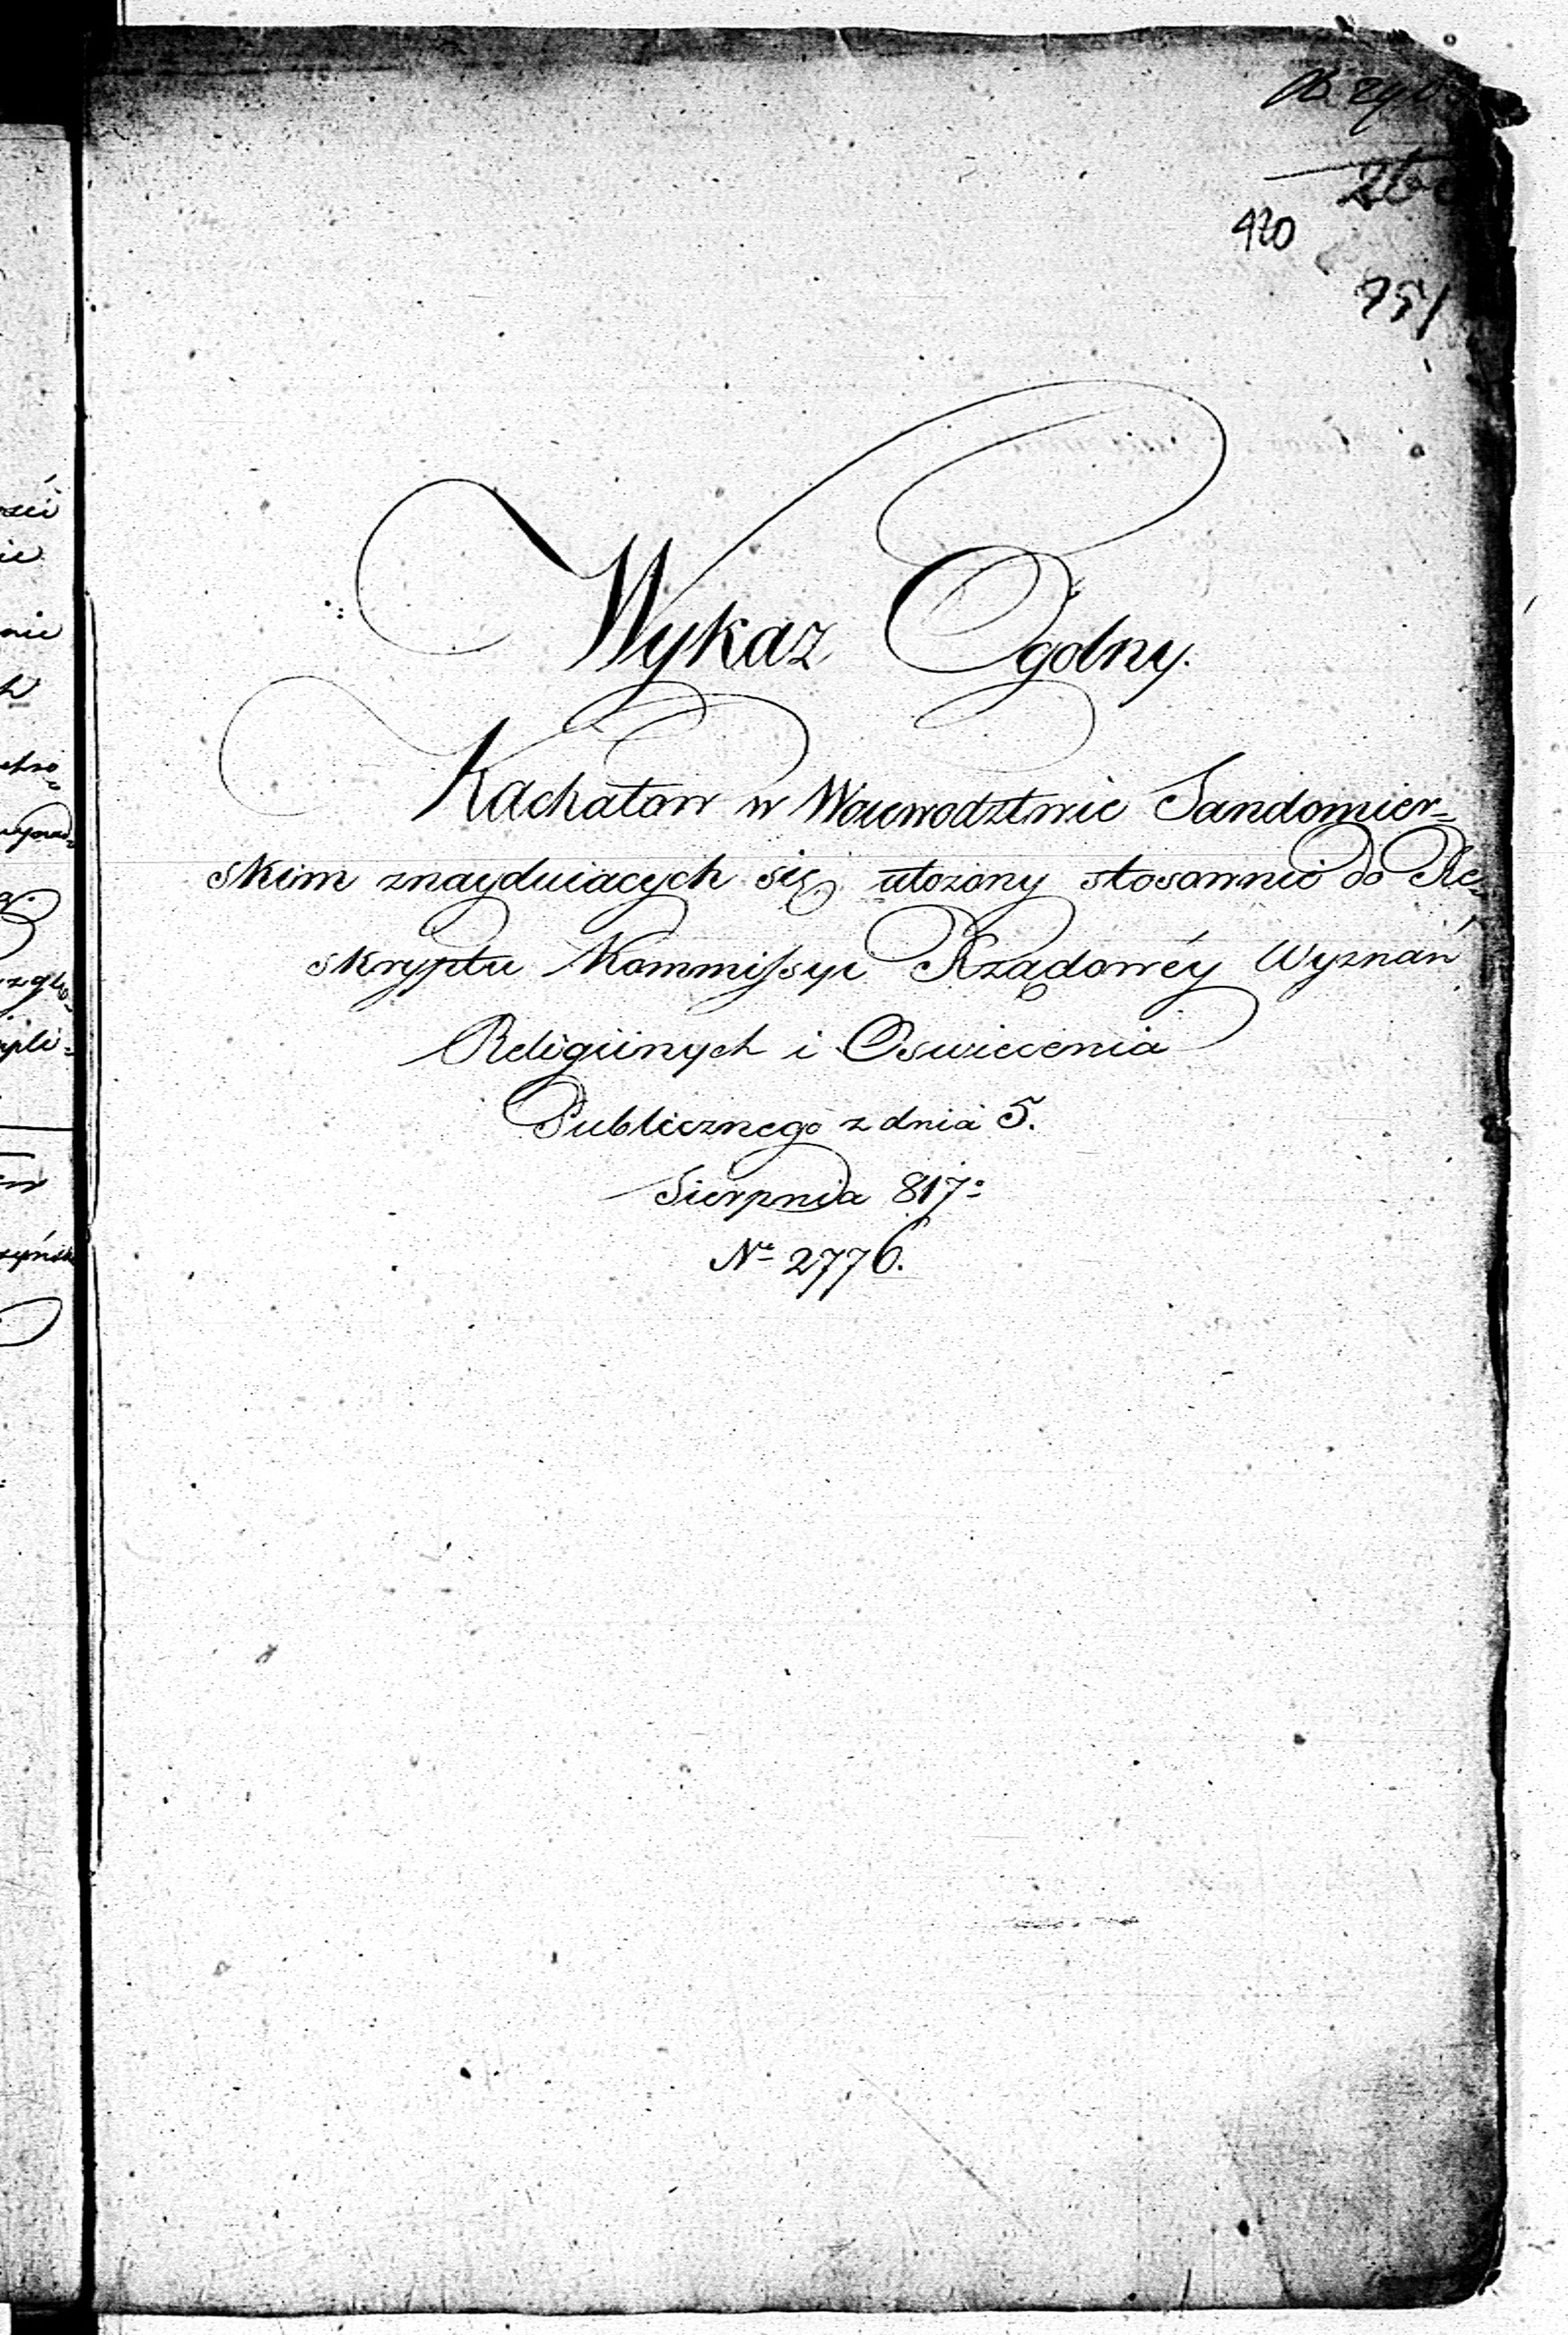 420
751
Wykaz Ogolny.
Kachałow w Woiewodztwie Sandomier=
skim znayduiacych się ułożony stosownie do Re=
skryptu Kommissyi Rządowéy Wyznań
Religiinych i Oswiecenia
Publicznego z dnia 5.
Sierpnia 817:
No 2776.